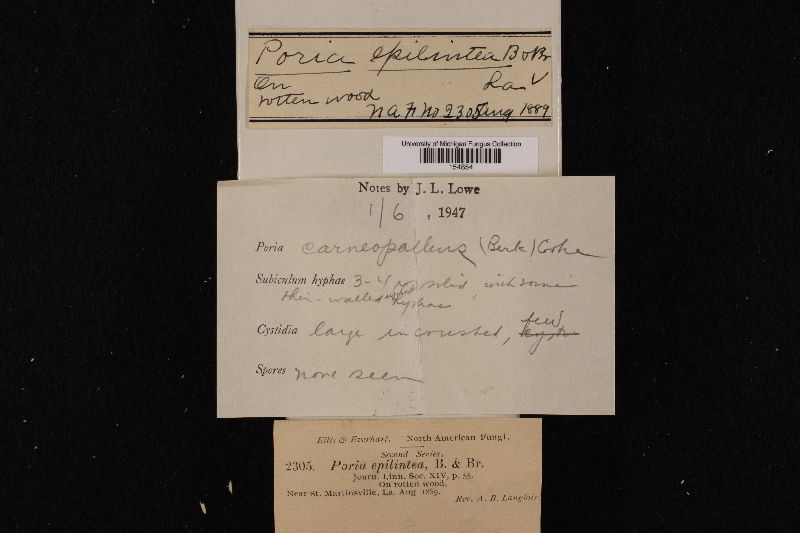 Poria epilintea B & Br
On
rotten wood
La V
N A F No 2305 Aug 1889
University of Michigan Fungus Collection
154854
Notes by J. L. Lowe
1/6, 1947
Poria carneopallens (Berk) Cooke
Subiculum hyphae 3-4 µ solid, with some
thin-walled hyphae
Cystidia large incrusted, few
Spores none seen
Ellis & Everhart. North American Fungi.
Second Series.
2305. Poria epilintea, B. & Br.
Journ. Linn. Soc. XIV, p. 55.
On rotten wood.
Near St. Martinsville, La. Aug 1889.
Rev. A. B. Langlois